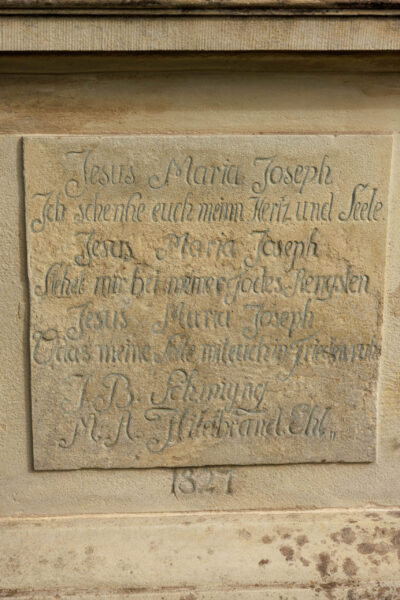 Jesus Maria Joseph
Ich schenke euch meinn Hertz und Seele
Jesus Maria Joseph
Stehet mir bei meiner Todes Aengsten
Jesus Maria Joseph
meine Seele mit euch in Frieden ruhe
J. B. Schmyng
M. A. Hitelbrand. Ehl„
1821